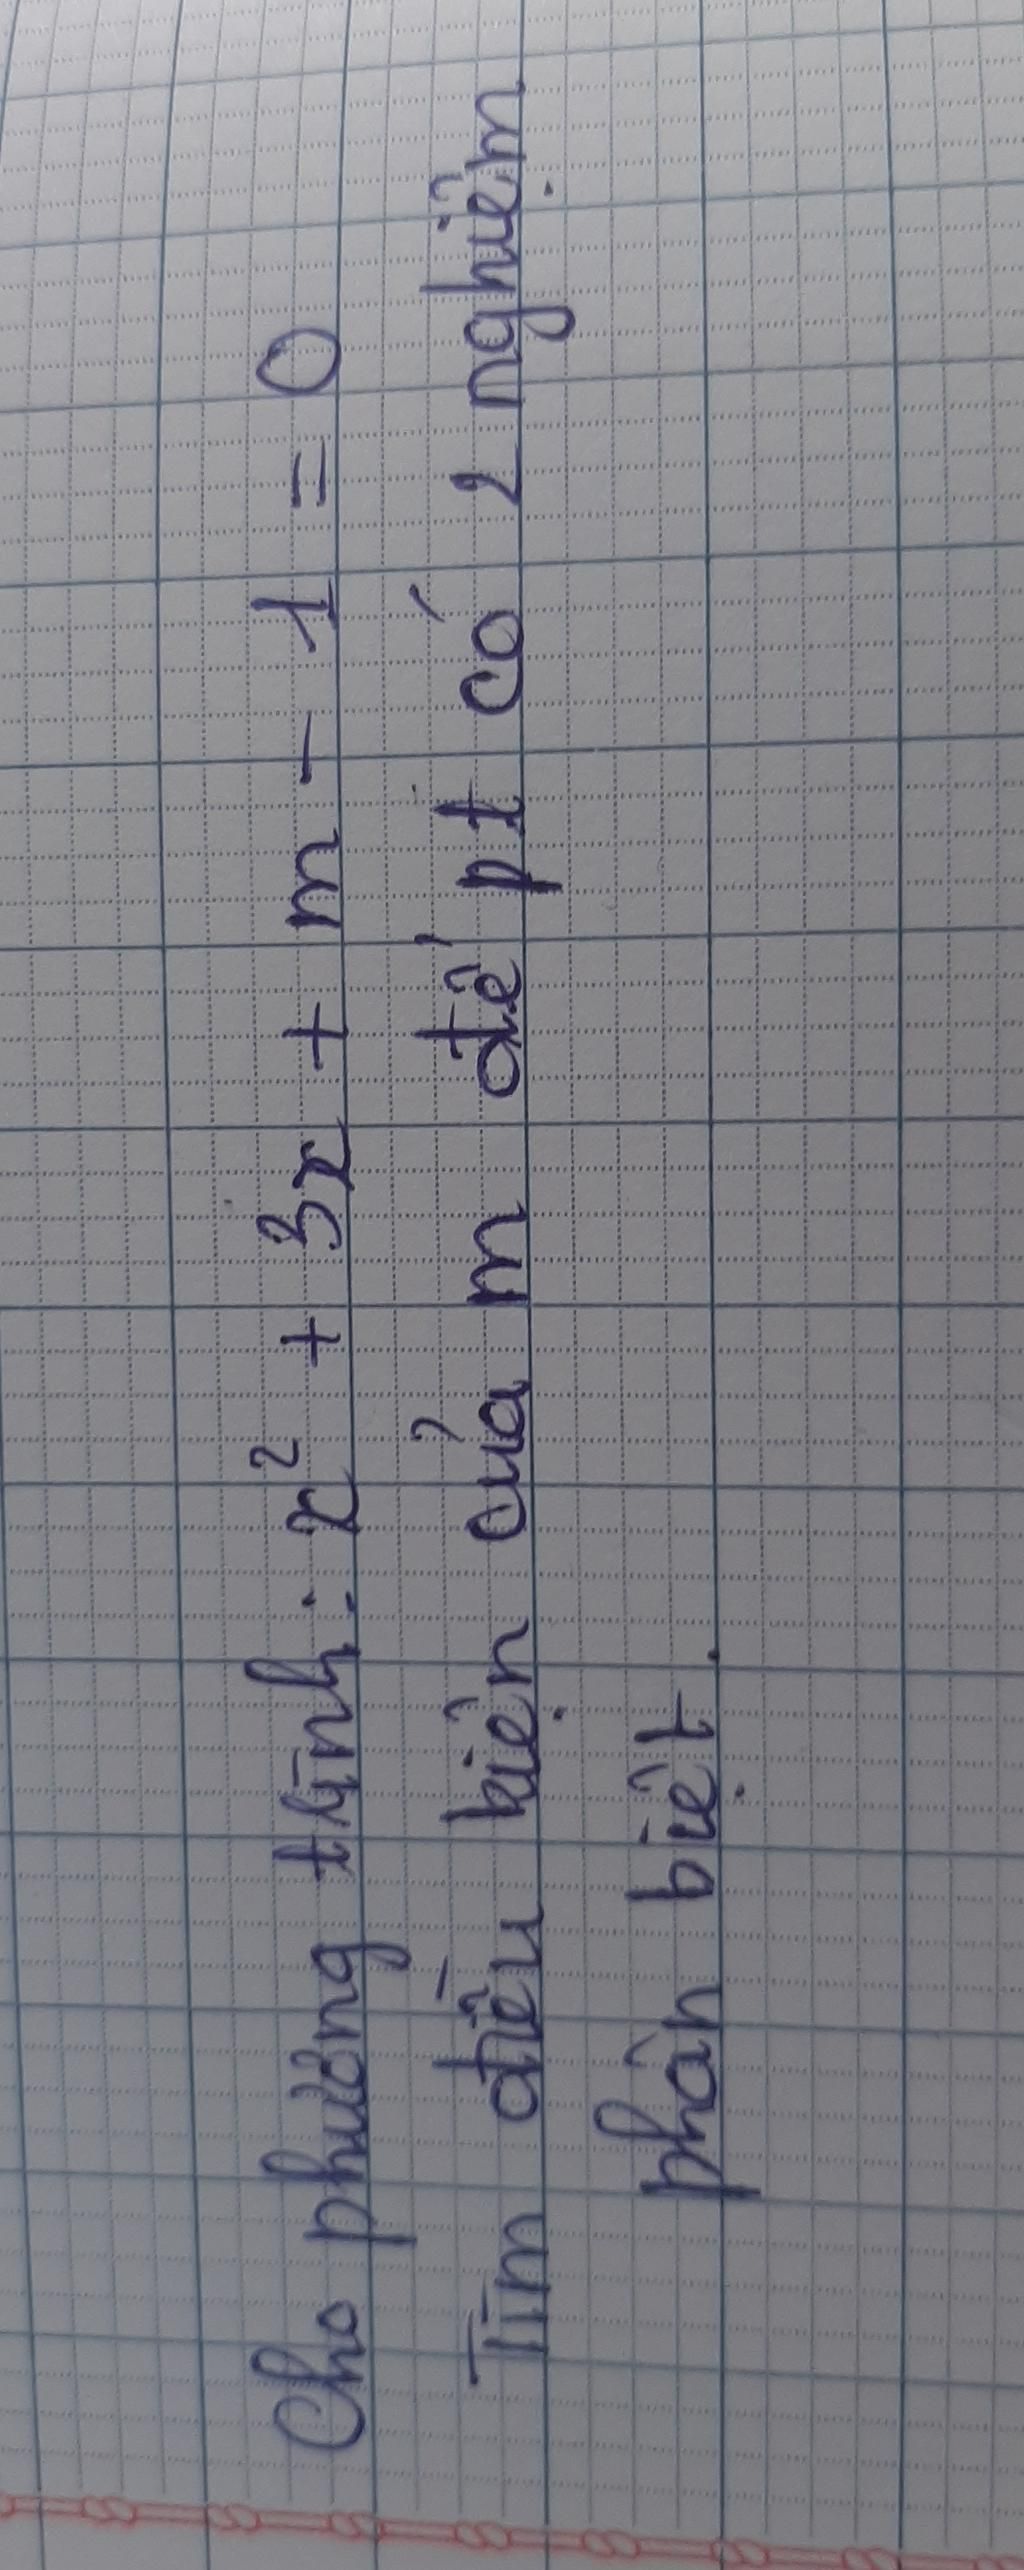 Cho phương trình : x² + 3x + m - 1 = 0
Tìm điều kiện của m để pt có 2 nghiệm
phân biệt.